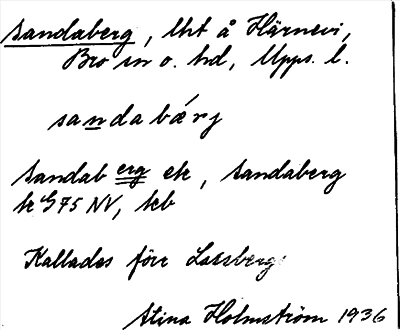 Sandaberg, lht å Härnevi,
Bro sn o. hd, Upps. l.
sandabærj
Sandaberg ek, Sandaberg
tc G75 NV, kb
Kallades förr Lassberg
Stina Holmström 1936